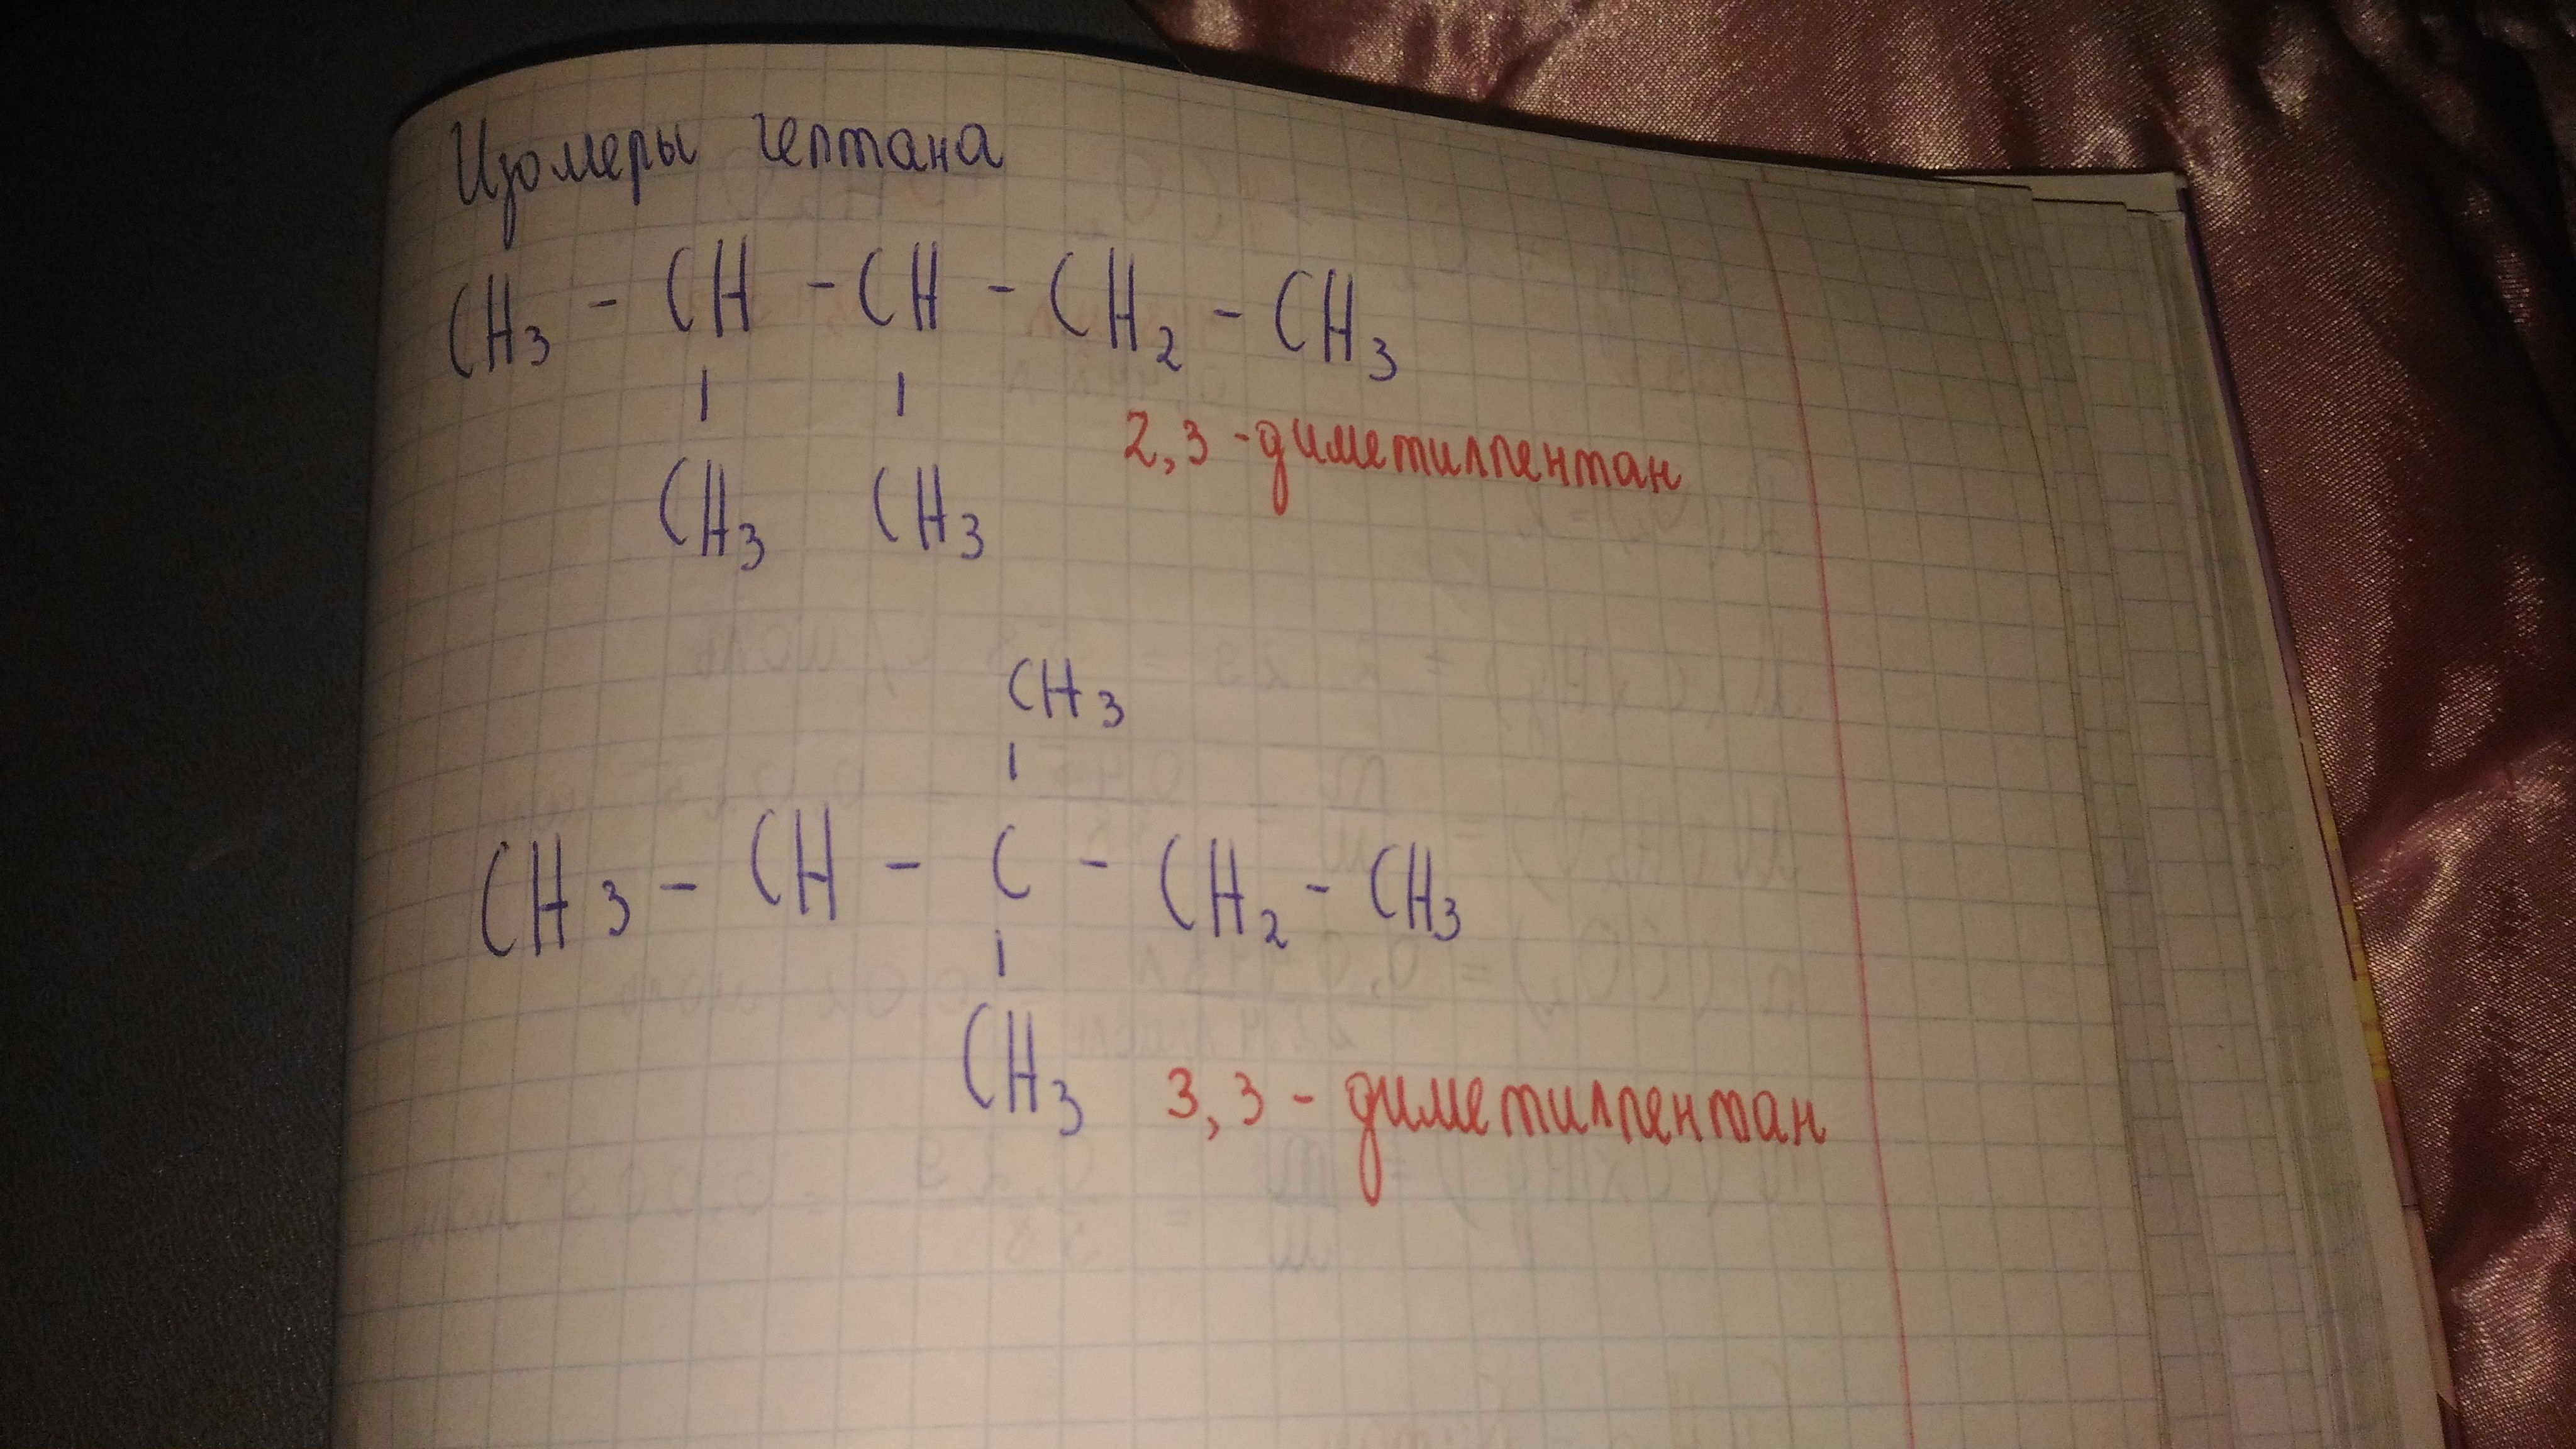 Изомеры гептана
CH3 - CH - CH - CH2 - CH3
I I
CH3 CH3
2,3 -диметилпентан
CH3
I
CH3 - CH - C - CH2 - CH3
I
CH3
3,3 - диметилпентан